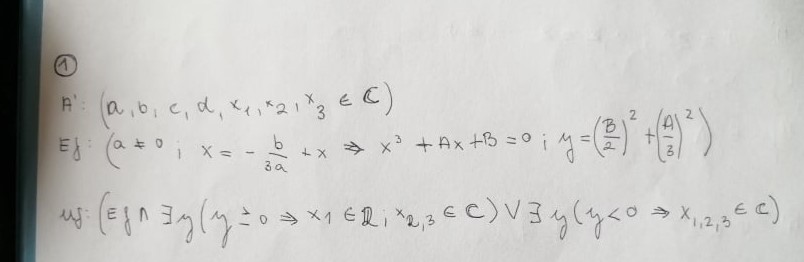 ①
A': (a, b, c, d, x₁, x₂, x₃ ∈ ℂ)
Ef: (a ≠ 0 ; x = - b/3a + x ⇒ x³ + Ax + B = 0 ; y = (B/2)² + (A/3)²)
uf: (Ef ∧ ∃y(y ≥ 0 ⇒ x1 ∈ ℝ ; x₂,₃ ∈ ℂ) ∨ ∃y(y < 0 ⇒ x₁,₂,₃ ∈ ℂ)